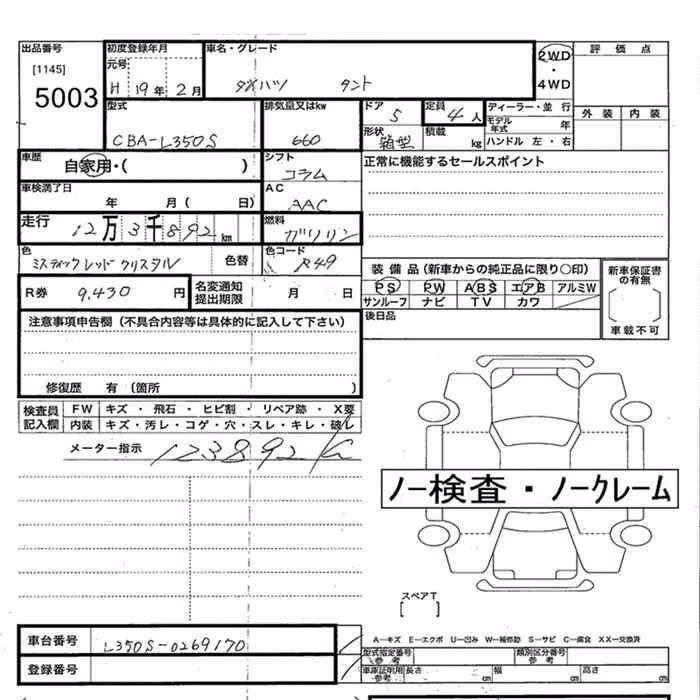 出品番号 初度登録年月 車名・グレード 2WD・4WD 評価点
[1145] 元号
5003 H 19年 2月 ダイハツ タント
型式 排気量又はkw ドア 定員 ディーラー・並行 外装 内装
CBA-L350S 660 5 4人 モデル年式 年
形状 箱型 積載 kg ハンドル 左・右
車歴 自家用・( ) シフト コラム 正常に機能するセールスポイント
車検満了日 年 月( 日) AC AAC
走行 12万3千892km 燃料 ガソリン
色 ミスティックレッドクリスタル 色替 色コード R49
装備品(新車からの純正品に限り○印) 新車保証書の有無
R券 9,430円 名変通知提出期限 月 日 PS PW ABS エアB アルミW
サンルーフ ナビ TV カワ
注意事項申告欄(不具合内容等は具体的に記入して下さい) 後日品 車載不可
修復歴 有(箇所 )
検査員記入欄 FW キズ・飛石・ヒビ割・リペア跡・X要
内装 キズ・汚レ・コゲ・穴・スレ・キレ・破レ
メーター指示 123892K
ノー検査・ノークレーム
スペアT
[ ]
車台番号 L350S-0269170
A-キズ E-エクボ U-凹み W-補修跡 S-サビ C-腐食 XX-交換済
型式指定番号 参考 類別区分番号 参考
登録番号 車庫証明用 参考 長さ cm 幅 cm 高さ cm